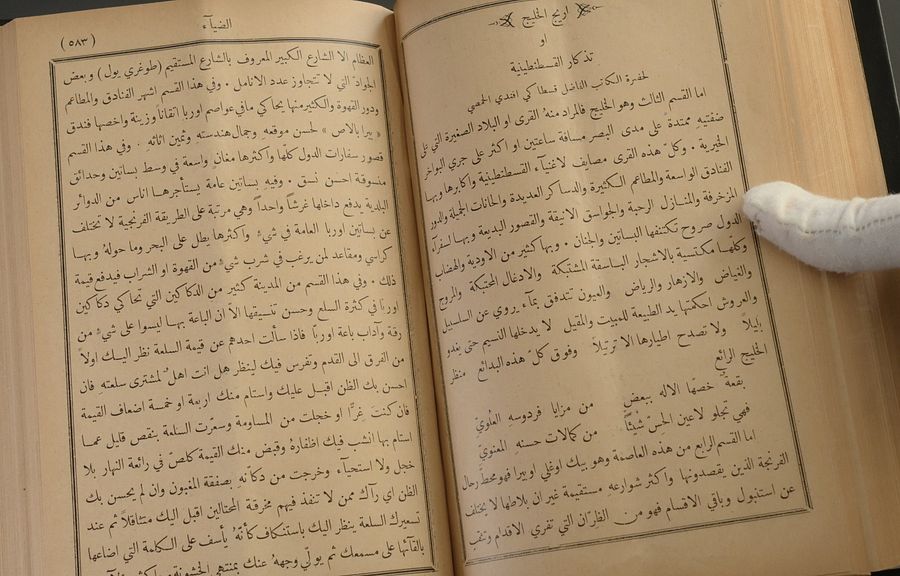 اريج الخليج
او
تذكار القسطنطينية
لحضرة الكاتب الفاضل قسطاكي افندي الحمصي
اما القسم الثالث وهو الخليج فالمراد منه القرى او البلاد الصغيرة التي على
ضفتيه ممتدة على مدى البصر مسافة ساعتين او اكثر على جري البواخر
الخيرية . وكل هذه القرى مصايف لاغنيآء القسطنطينية واكابرها وبها
الفنادق الواسعة والمطاعم الكثيرة والدساكر العديدة والحانات الجميلة والدور
المزخرفة والمنازل الرحبة والجواسق الانيقة والقصور البديعة وبها لسفرآء
الدول صروح تكتنفها البساتين والجنان . وبها كثير من الاودية والهضاب
وكلها مكتسية بالاشجار الباسقة المشتبكة والادغال المحتبكة والمروج
والغياض والازهار والرياض والعيون تتدفق بمآء يروي عن السلسبيل
والعروش احكمتها يد الطبيعة للمبيت والمقيل لا يدخلها النسيم حتى يغدو
بليلاً ولا تصدح اطيارها الا ترتيلاً وفوق كل هذه البدائع منظر
الخليج الرائع
بقعة خصها الاله ببعضٍ من مزايا فردوسه العلويّ
فهي تجلو لاعين الحسّ شيئاً من كمالات حسنه المعنويّ
اما القسم الرابع من هذه العاصمة وهو بيك اوغلي او بيرا فهو محط رحال
الفرنجة الذين يقصدونها واكثر شوارعه مستقيمة غير ان بلاطها لا يختلف
عن استنبول وباقي الاقسام فهو من الظران التي تفري الاقدام وتنقب
الضيآء
(٥٨٣)
العظام الا الشارع الكبير المعروف بالشارع المستقيم (طوغري يول) وبعض
الجوادّ التي لا تتجاوز عدد الانامل . وفي هذا القسم اشهر الفنادق والمطاعم
ودور القهوة والكثير منها يحاكي ما في عواصم اوربا اتقاناً وزينة واخصها فندق
« بيرا بالاص » لحسن موقعه وجمال هندسته وثمين اثاثه . وفي هذا القسم
قصور سفارات الدول كلها واكثرها مغانٍ واسعة في وسط بساتين وحدائق
منسوقة احسن نسق . وفيه بساتين عامة يستأجرها اناس من الدوائر
البلدية يدفع داخلها غرشاً واحداً وهي مرتبة على الطريقة الفرنجية لا تختلف
عن بساتين اوربا العامة في شيء واكثرها يطل على البحر وما حوله وبها
كراسي ومقاعد لمن يرغب في شرب شيء من القهوة او الشراب فيدفع قيمة
ذلك . وفي هذا القسم من المدينة كثير من الدكاكين التي تحاكي دكاكين
اوربا في كثرة السلع وحسن تنسيقها الا ان الباعة بها ليسوا على شيء من
رقة وآداب باعة اوربا فاذا سألت احدهم عن قيمة السلعة نظر اليك اولاً
من الفرق الى القدم وتفرس فيك لينظر هل انت اهل لمشترى سلعته فان
احسن بك الظن اقبل عليك واستام منك اربعة او خمسة اضعاف القيمة
فان كنت غرًّا او خجلت من المساومة وسعرت السلعة بنقص قليل عما
استام بها انشب فيك اظفارهُ وقبض منك القيمة كلصّ في رائعة النهار بلا
خجل ولا استحيآء وخرجت من دكانه بصفقة المغبون وان لم يحسن بك
الظن اي رآك ممن لا تنفذ فيهم مخرقة المحتالين اقبل اليك متثاقلاً ثم عند
تسعيرك السلعة ينظر اليك باستنكاف كأنه يأسف على الكلمة التي اضاعها
بالقآئها على مسمعك ثم يولي وجهه عنك بمنتهى الخشونة